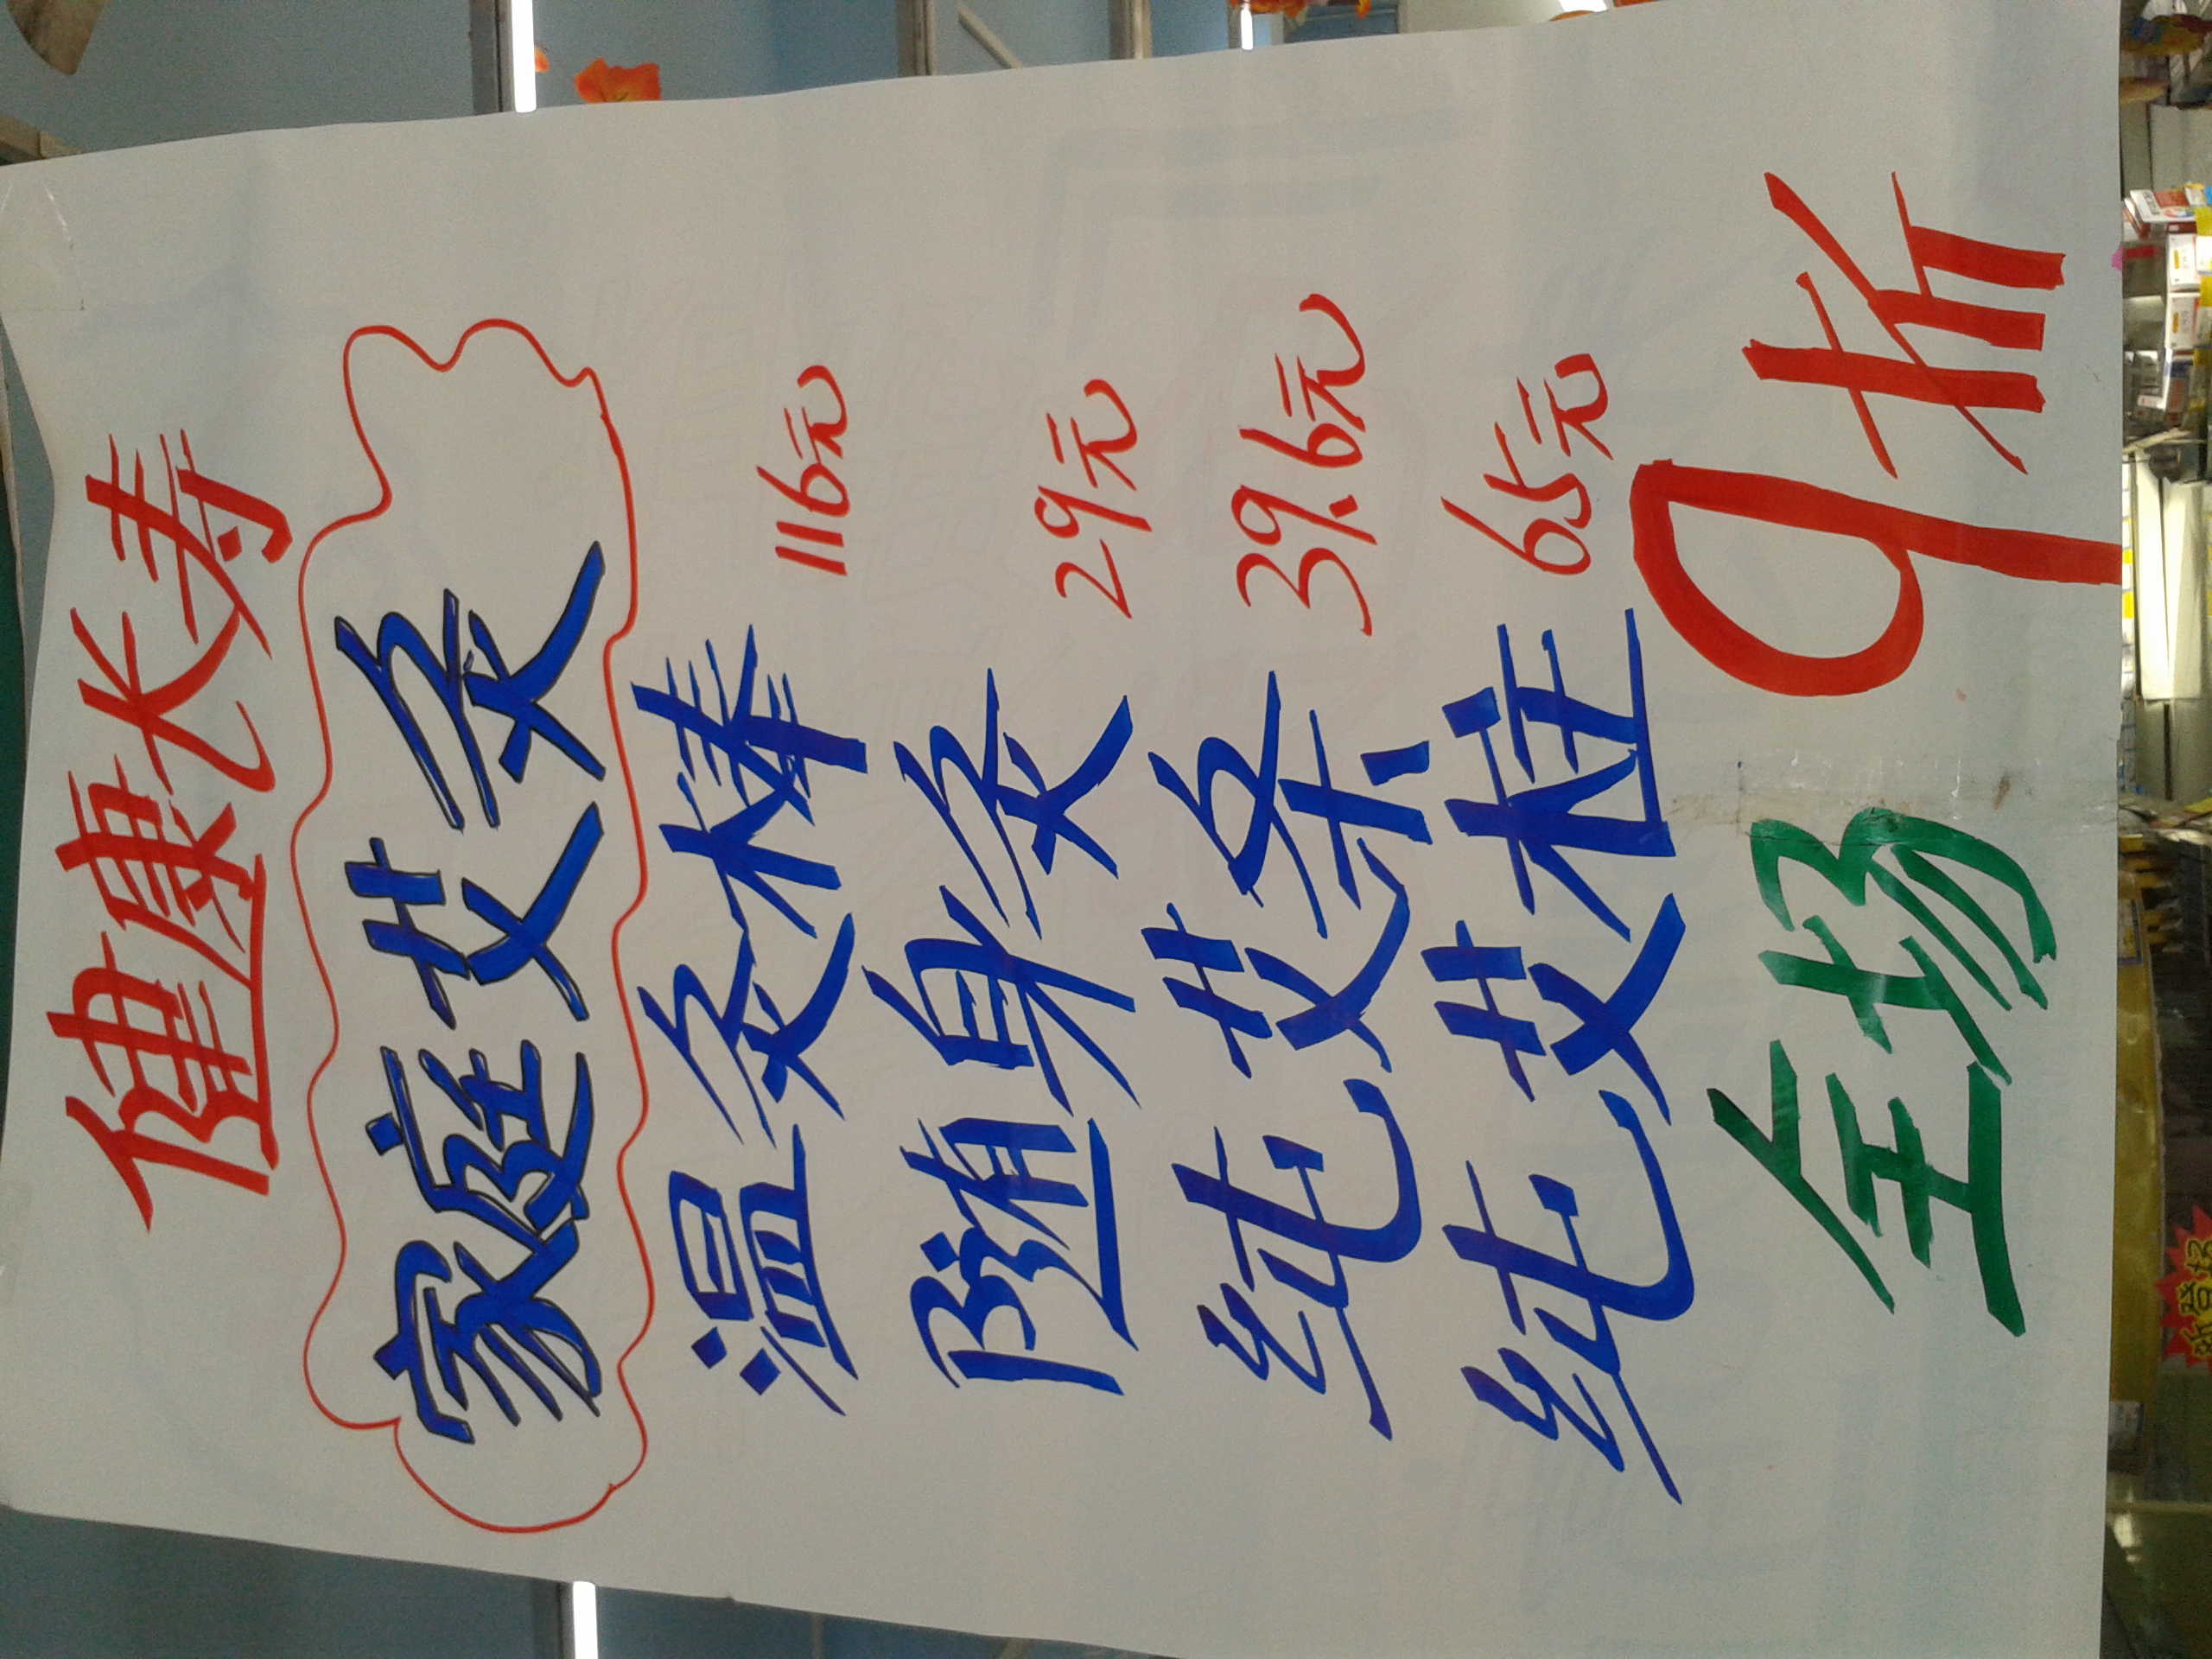 健康长寿
家庭艾灸
温灸棒 116元
随身灸 29元
纯艾条 39.6元
纯艾柱 65元
全场9折